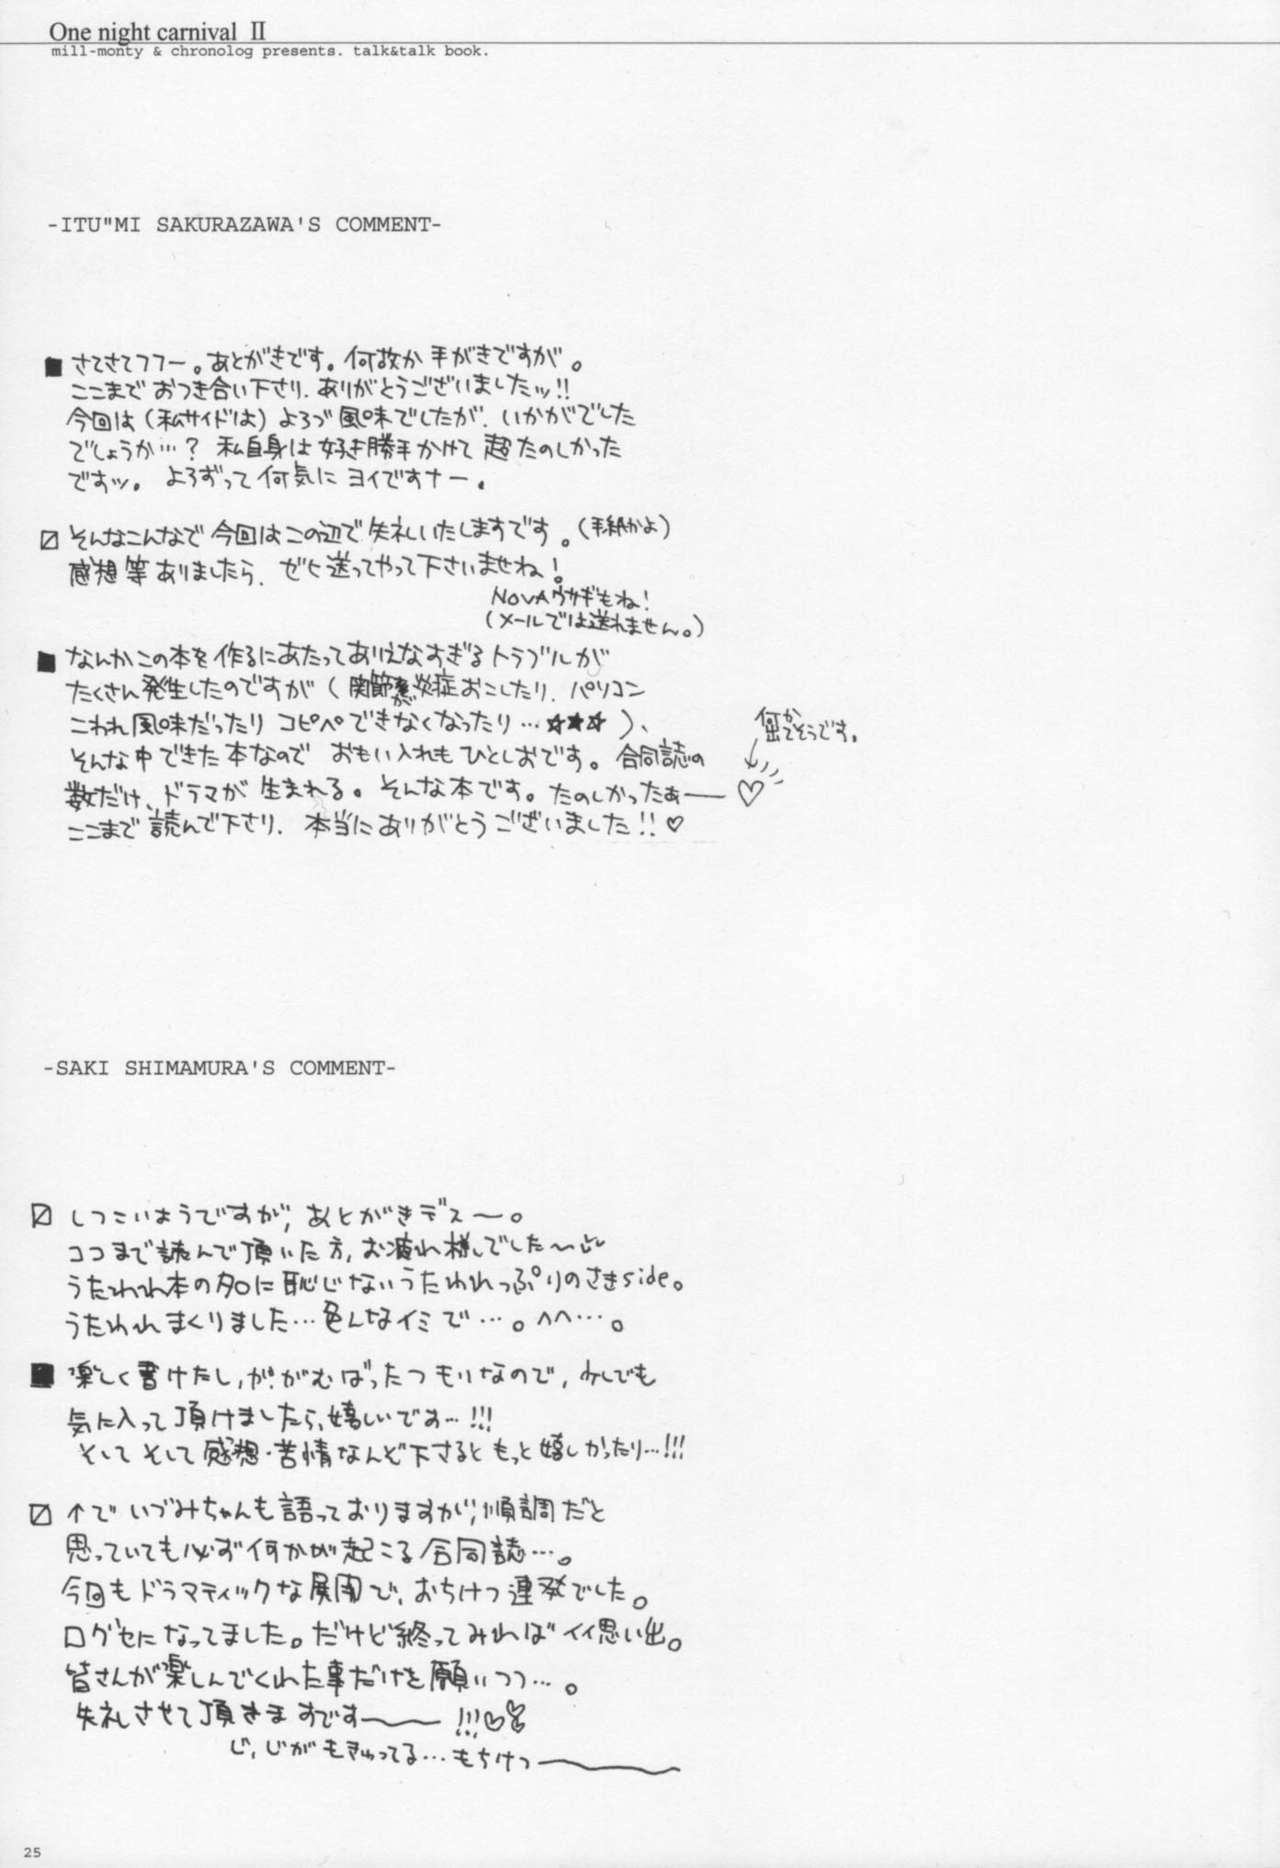 One night carnival Ⅱ
mill-monty & chronolog presents. talk&talk book.
-ITU"MI SAKURAZAWA'S COMMENT-
■ さてさてフフー。あとがきです。何故か手がきですが。
ここまでおつき合い下さり、ありがとうございましたッ!!
今回は(私サイドは)よろづ風味でしたが、いかがでした
でしょうか…? 私自身は好き勝手かけて超たのしかった
ですッ。よろずって何気にヨイですナー。
〼 そんなこんなで今回はこの辺で失礼いたしますです。(手紙かよ)
感想等ありましたら、ぜひ送ってやって下さいませね!
NOVAウサギもね!
(メールでは送れません。)
■ なんかこの本を作るにあたってありえなすぎるトラブルが
たくさん発生したのですが(関節が炎症おこしたり、パソコン
こわれ風味だったりコピペできなくなったり…☆★☆)、
そんな中できた本なので おもい入れもひとしおです。合同誌の
数だけ、ドラマが生まれる。そんな本です。たのしかったぁー♡
何か
出てそうです。
ここまで読んで下さり、本当にありがとうございました!!♡
-SAKI SHIMAMURA'S COMMENT-
〼 しつこいようですが、あとがきデス〜。
ココまで読んで頂いた方、お疲れ様でした〜
うたわれ本の名に恥じないうたわれっぷりのさきside。
うたわれまくりました…色んなイミで…。へへ…。
■ 楽しく書けたし、が、がむばったつもりなので、少しでも
気に入って頂けましたら、嬉しいです…!!!
そしてそして感想・苦情なんぞ下さるともっと嬉しかったり…!!!
〼 ↑でいづみちゃんも語っておりますが、順調だと
思っていても必ず何かが起こる合同誌…。
今回もドラマティックな展開で、おちけつ連発でした。
口グセになってました。だけど終ってみればイイ思い出。
皆さんが楽しんでくれた事だけを願いつつ…。
失礼させて頂きますですー!!!♡
じ、じがもきゅってる…もちけつー
25